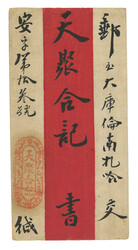 郵至大庫倫南札哈交
天聚合記書
安字第拾叁號
緘